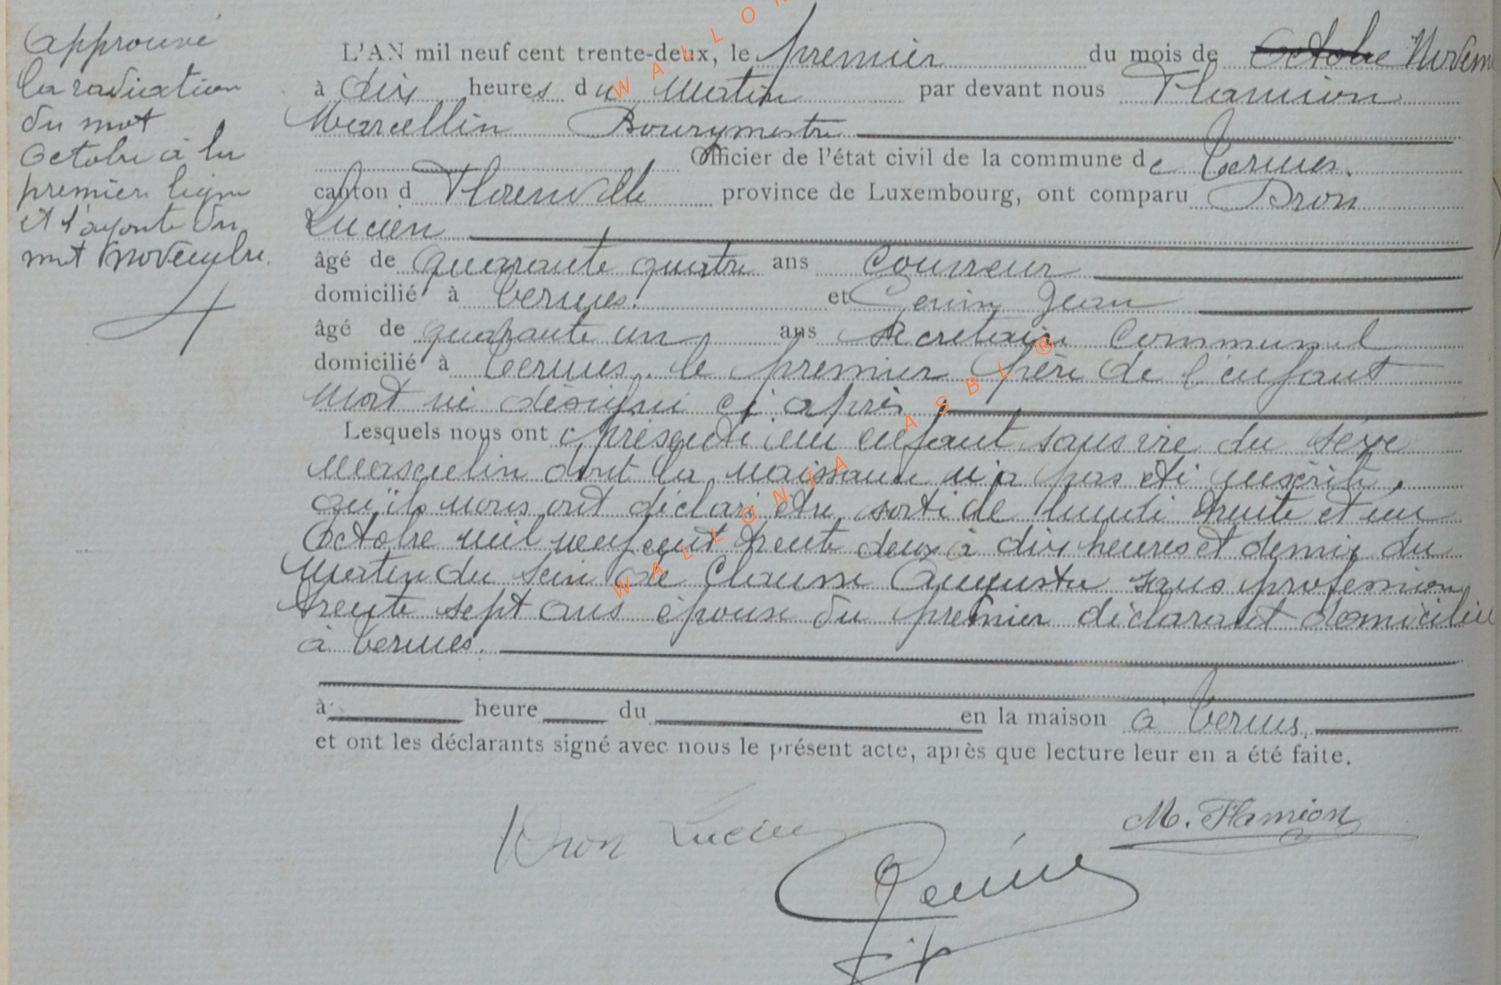 approuvé
la radiation
du mot
Octobre à la
premier ligne
et l'ajoute du
mot novembre.
L'AN mil neuf cent trente-deux, le premier du mois de Octobre Novem
à dix heures du Matin par devant nous Flamion
Marcellin Bourgmestre
Officier de l'état civil de la commune de Termes.
canton d Florenville province de Luxembourg, ont comparu Dron
Lucien
âgé de quarante quatre ans Couvreur
domicilié à Termes. et Genin Jean
âgé de quarante un ans Secretaire Communal
domicilié à Termes. le premier père de l'enfant
Mort né désigné ci après
Lesquels nous ont présenté un enfant sans vie du sexe
Masculin dont la naissance n'a pas été inscrite.
qu'ils nous ont déclaré être sorti de lundi trente et un
Octobre mil neuf cent trente deux à dix heures et demie du
Matin du sein de Clausse Augusta sans profession
trente sept ans épouse du premier déclarant domiciliée
à Termes.
à heure du en la maison à Termes,
et ont les déclarants signé avec nous le présent acte, après que lecture leur en a été faite.
Dron Lucien
M. Flamion
Genin
WALLONIA ASBL ®
WALLON